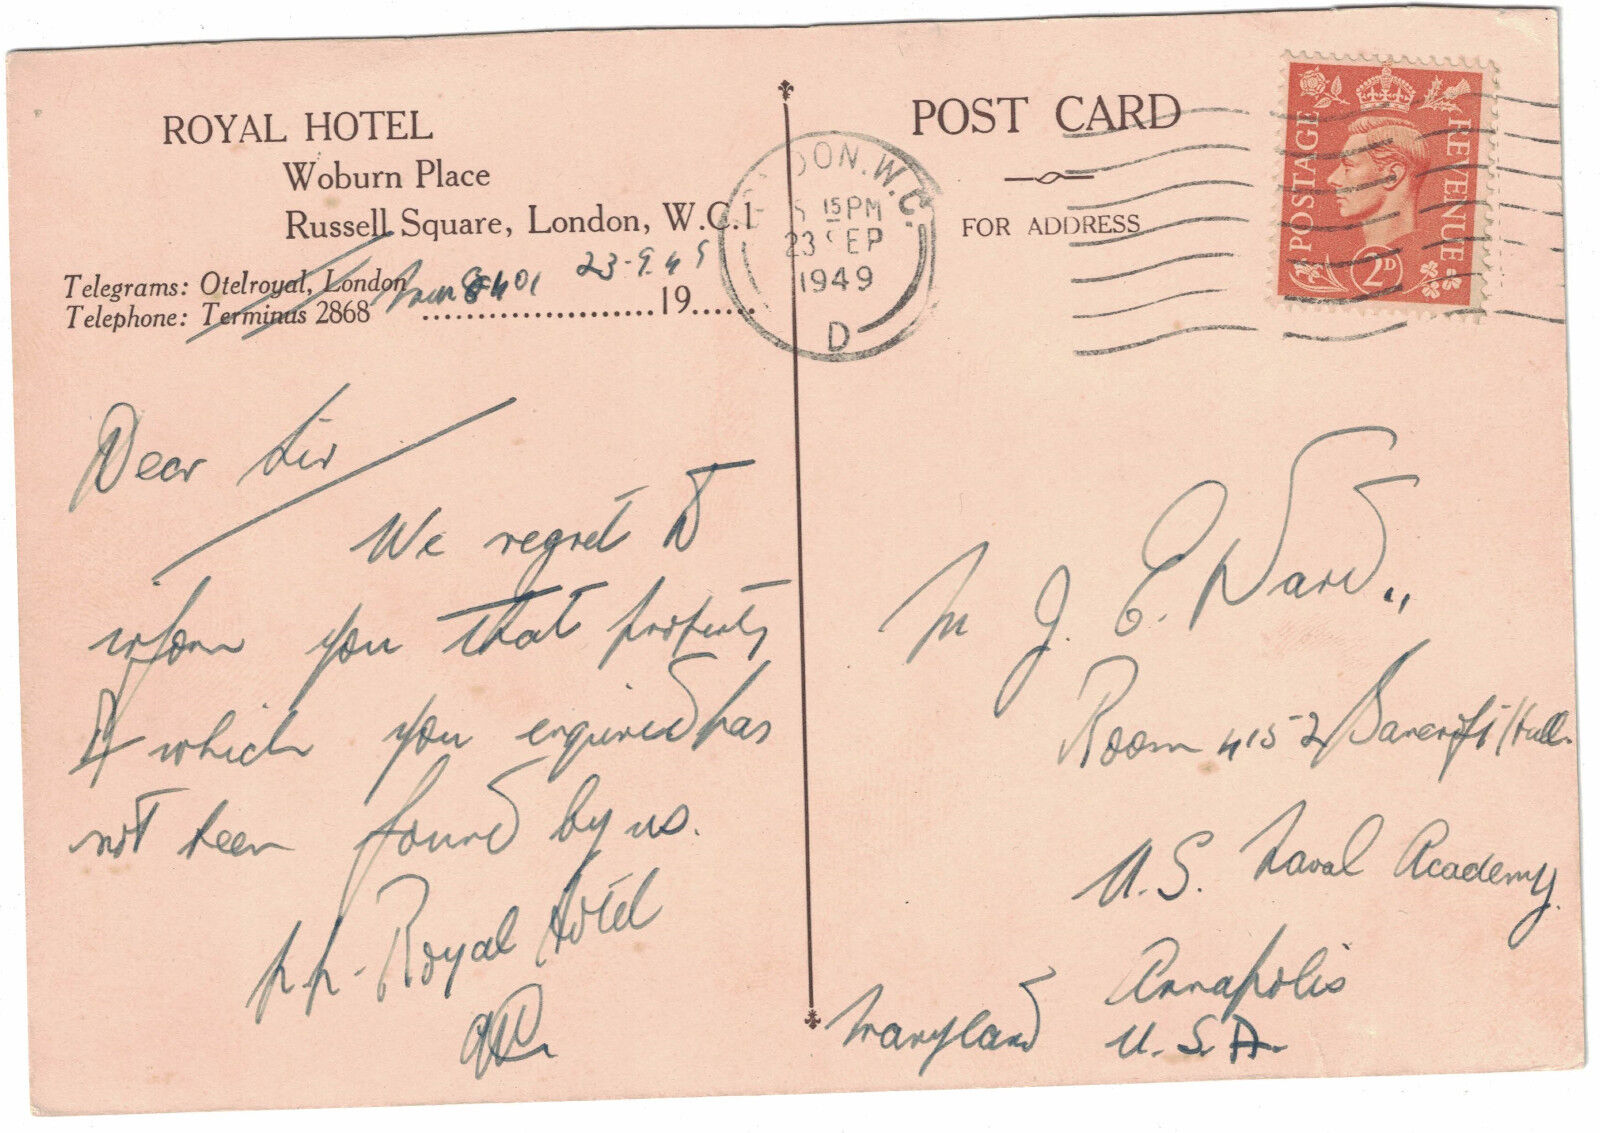 ROYAL HOTEL
Woburn Place
Russell Square, London, W.C.1
Telegrams: Otelroyal, London
Telephone: Terminus 2868
8401 23-9.49
19
Dear Sir
We regret to
inform you that property
of which you enquired has
not been found by us.
p.p. Royal Hotel
POST CARD
FOR ADDRESS
LONDON.W.C.
5 15 PM
23 SEP
1949
D
POSTAGE
REVENUE
2D
M J. E. Ward,
Room 4152 Bancroft Hall
U.S. Naval Academy
Annapolis
Maryland U.S.A.